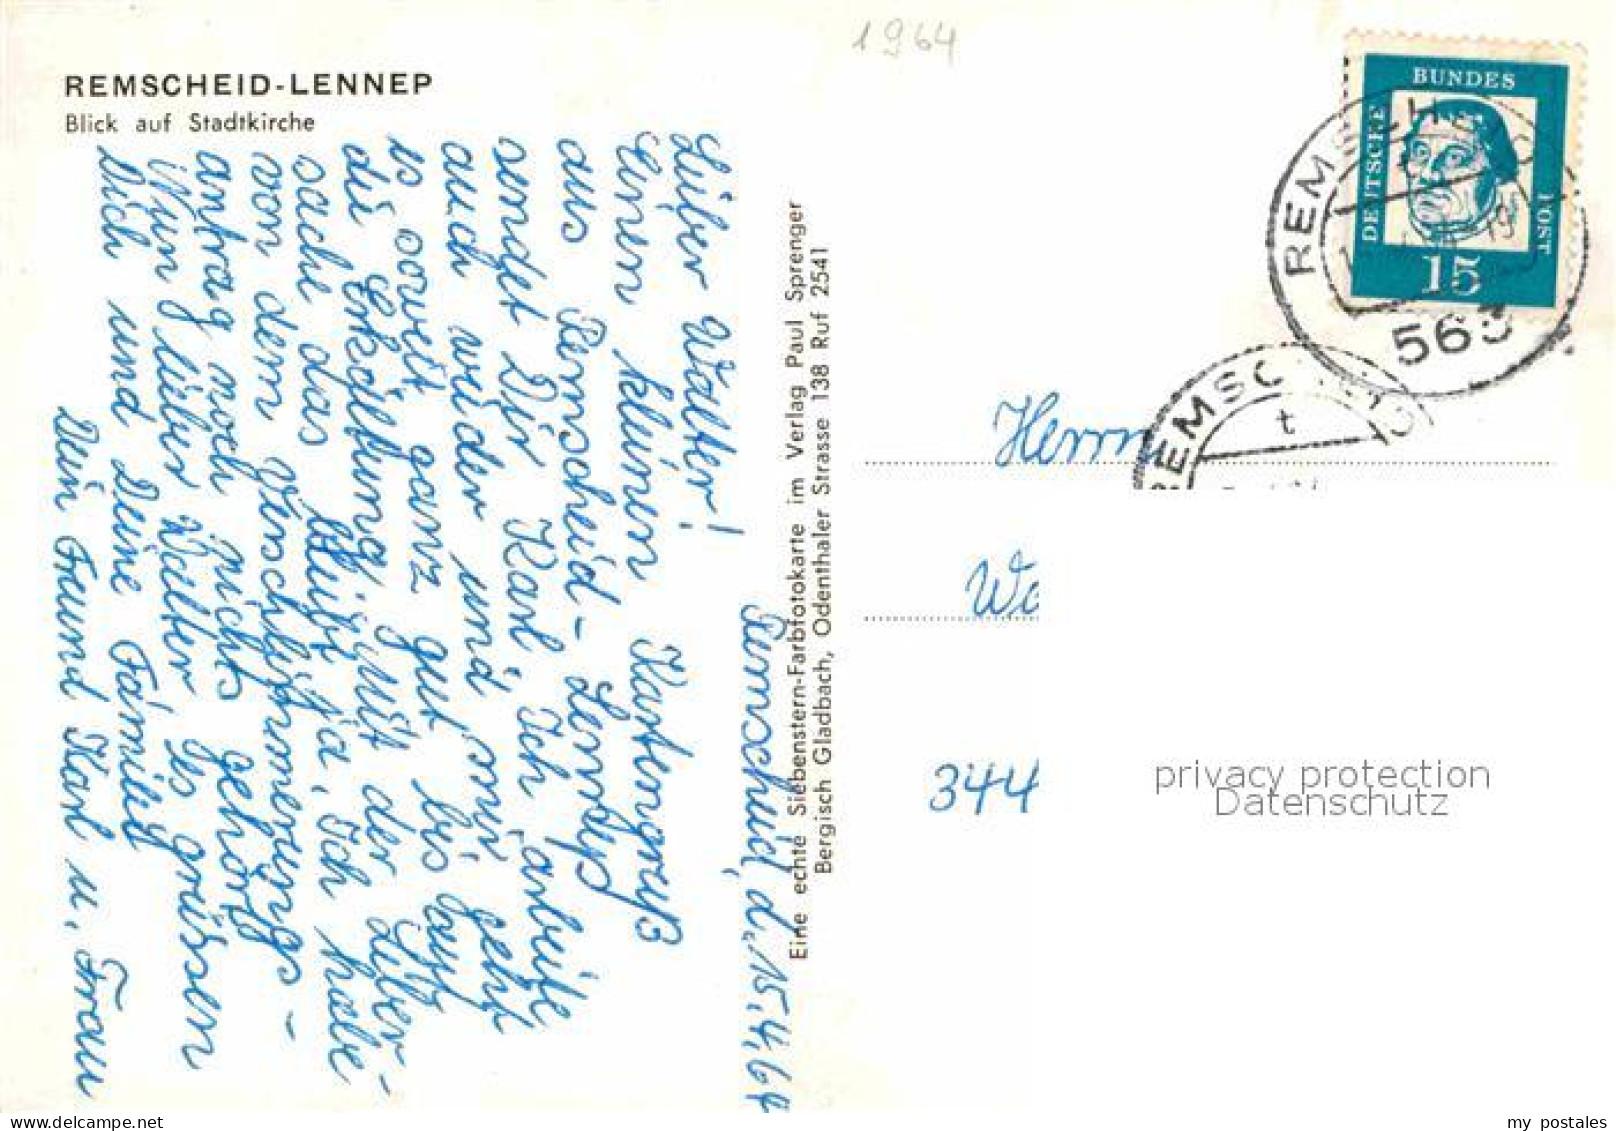 REMSCHEID-LENNEP
Blick auf Stadtkirche
Remscheid, d. 15.4.64
Lieber Walter!
Einen kleinen Kartengruß
aus Remscheid-Lennep
sendet Dir Karl, Ich arbeite
auch wieder und mir geht
es soweit ganz gut bis auf
die Erkältung, mit der Leber-
sache das bleibt ja, Ich habe
von dem Verschlimmerungs-
antrag noch nichts gehört
Nun lieber Walter Es grüssen
Dich und Deine Familie
Dein Freund Karl u. Frau
Eine echte Siebenstern-Farbfotokarte im Verlag Paul Sprenger
Bergisch Gladbach, Odenthaler Strasse 138 Ruf 2541
1964
DEUTSCHE BUNDES POST
15
REMSCHEID
563
REMSCHEID
t
Herrn
344
privacy protection
Datenschutz
delcampe.net
my_postales